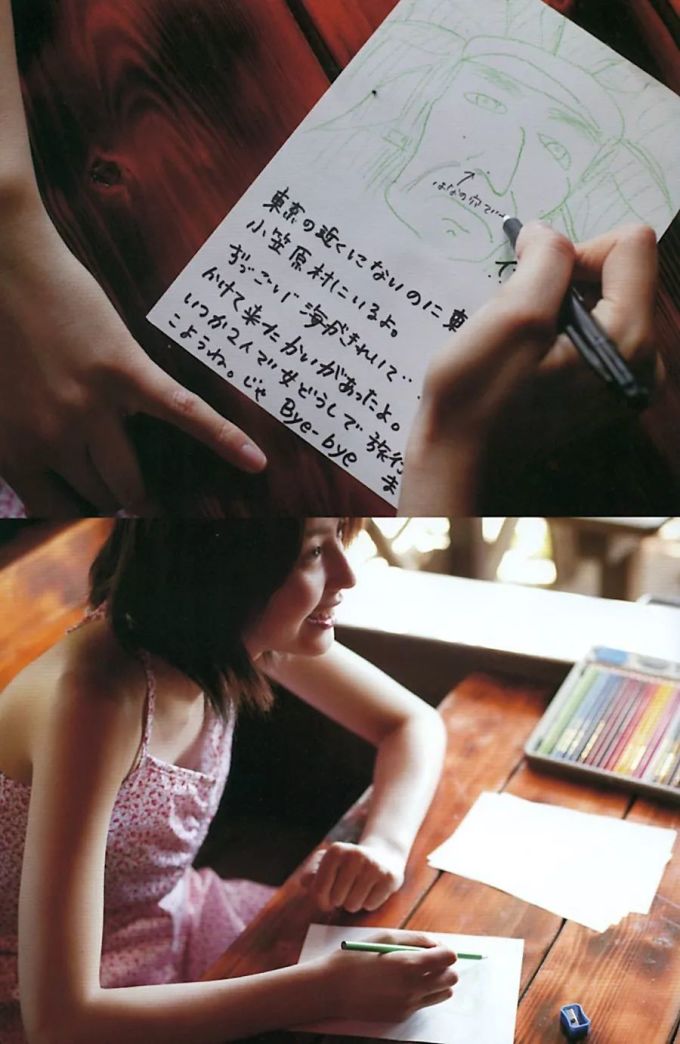 はなの穴
東京の近くにないのに東
小笠原村にいるよ。
すっごい 海がきれいで・・・
かけて来たかいがあったよ。
いつか2人で女どうしで旅行
こようね。じゃ Bye-bye ま